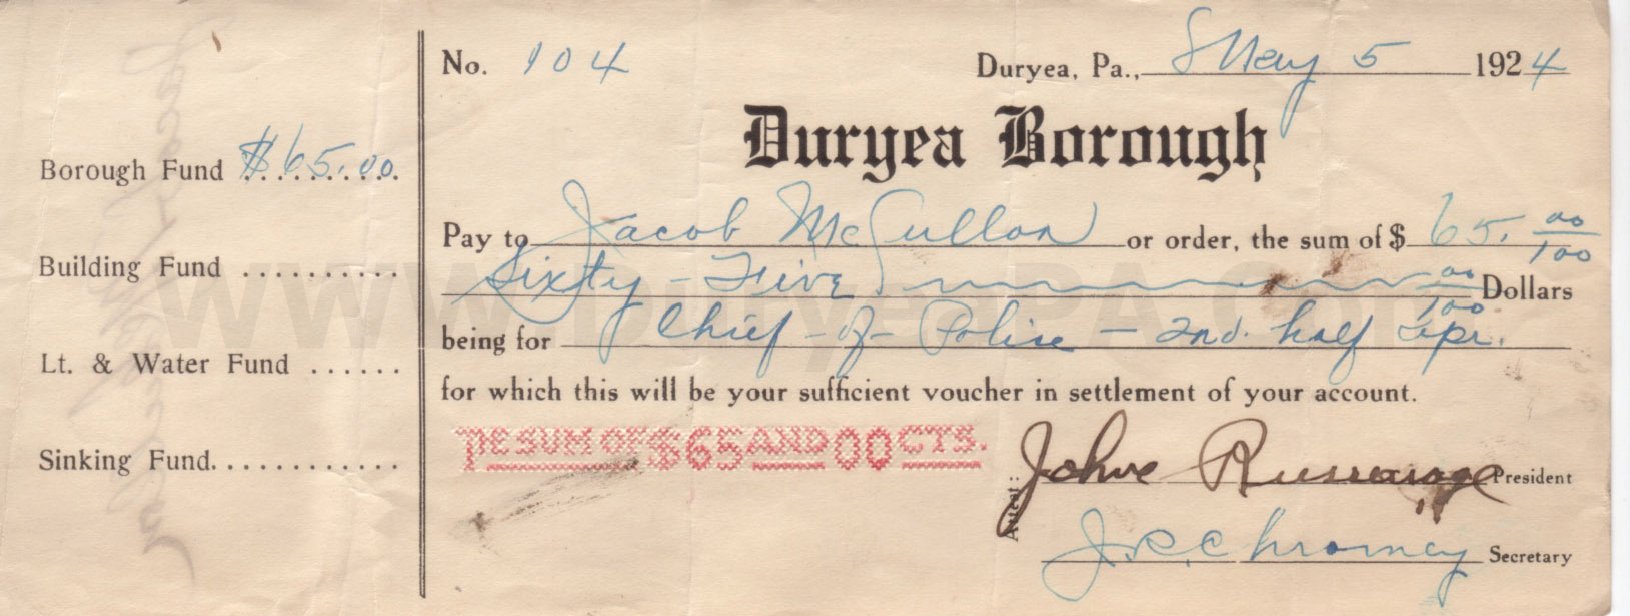 No. 104
Duryea, Pa., May 5 1924
Duryea Borough
Borough Fund $65.00
Pay to Jacob McCullon or order, the sum of $ 65. 00/100
Sixty-Five 00/100 Dollars
Building Fund ..........
being for Chief-of-Police - 2nd. half Apr.
Lt. & Water Fund ......
for which this will be your sufficient voucher in settlement of your account.
THE SUM OF $65 AND 00 CTS.
Sinking Fund............
Attest:
John President
J. R. Chromey Secretary
www.DuryeaPA.com